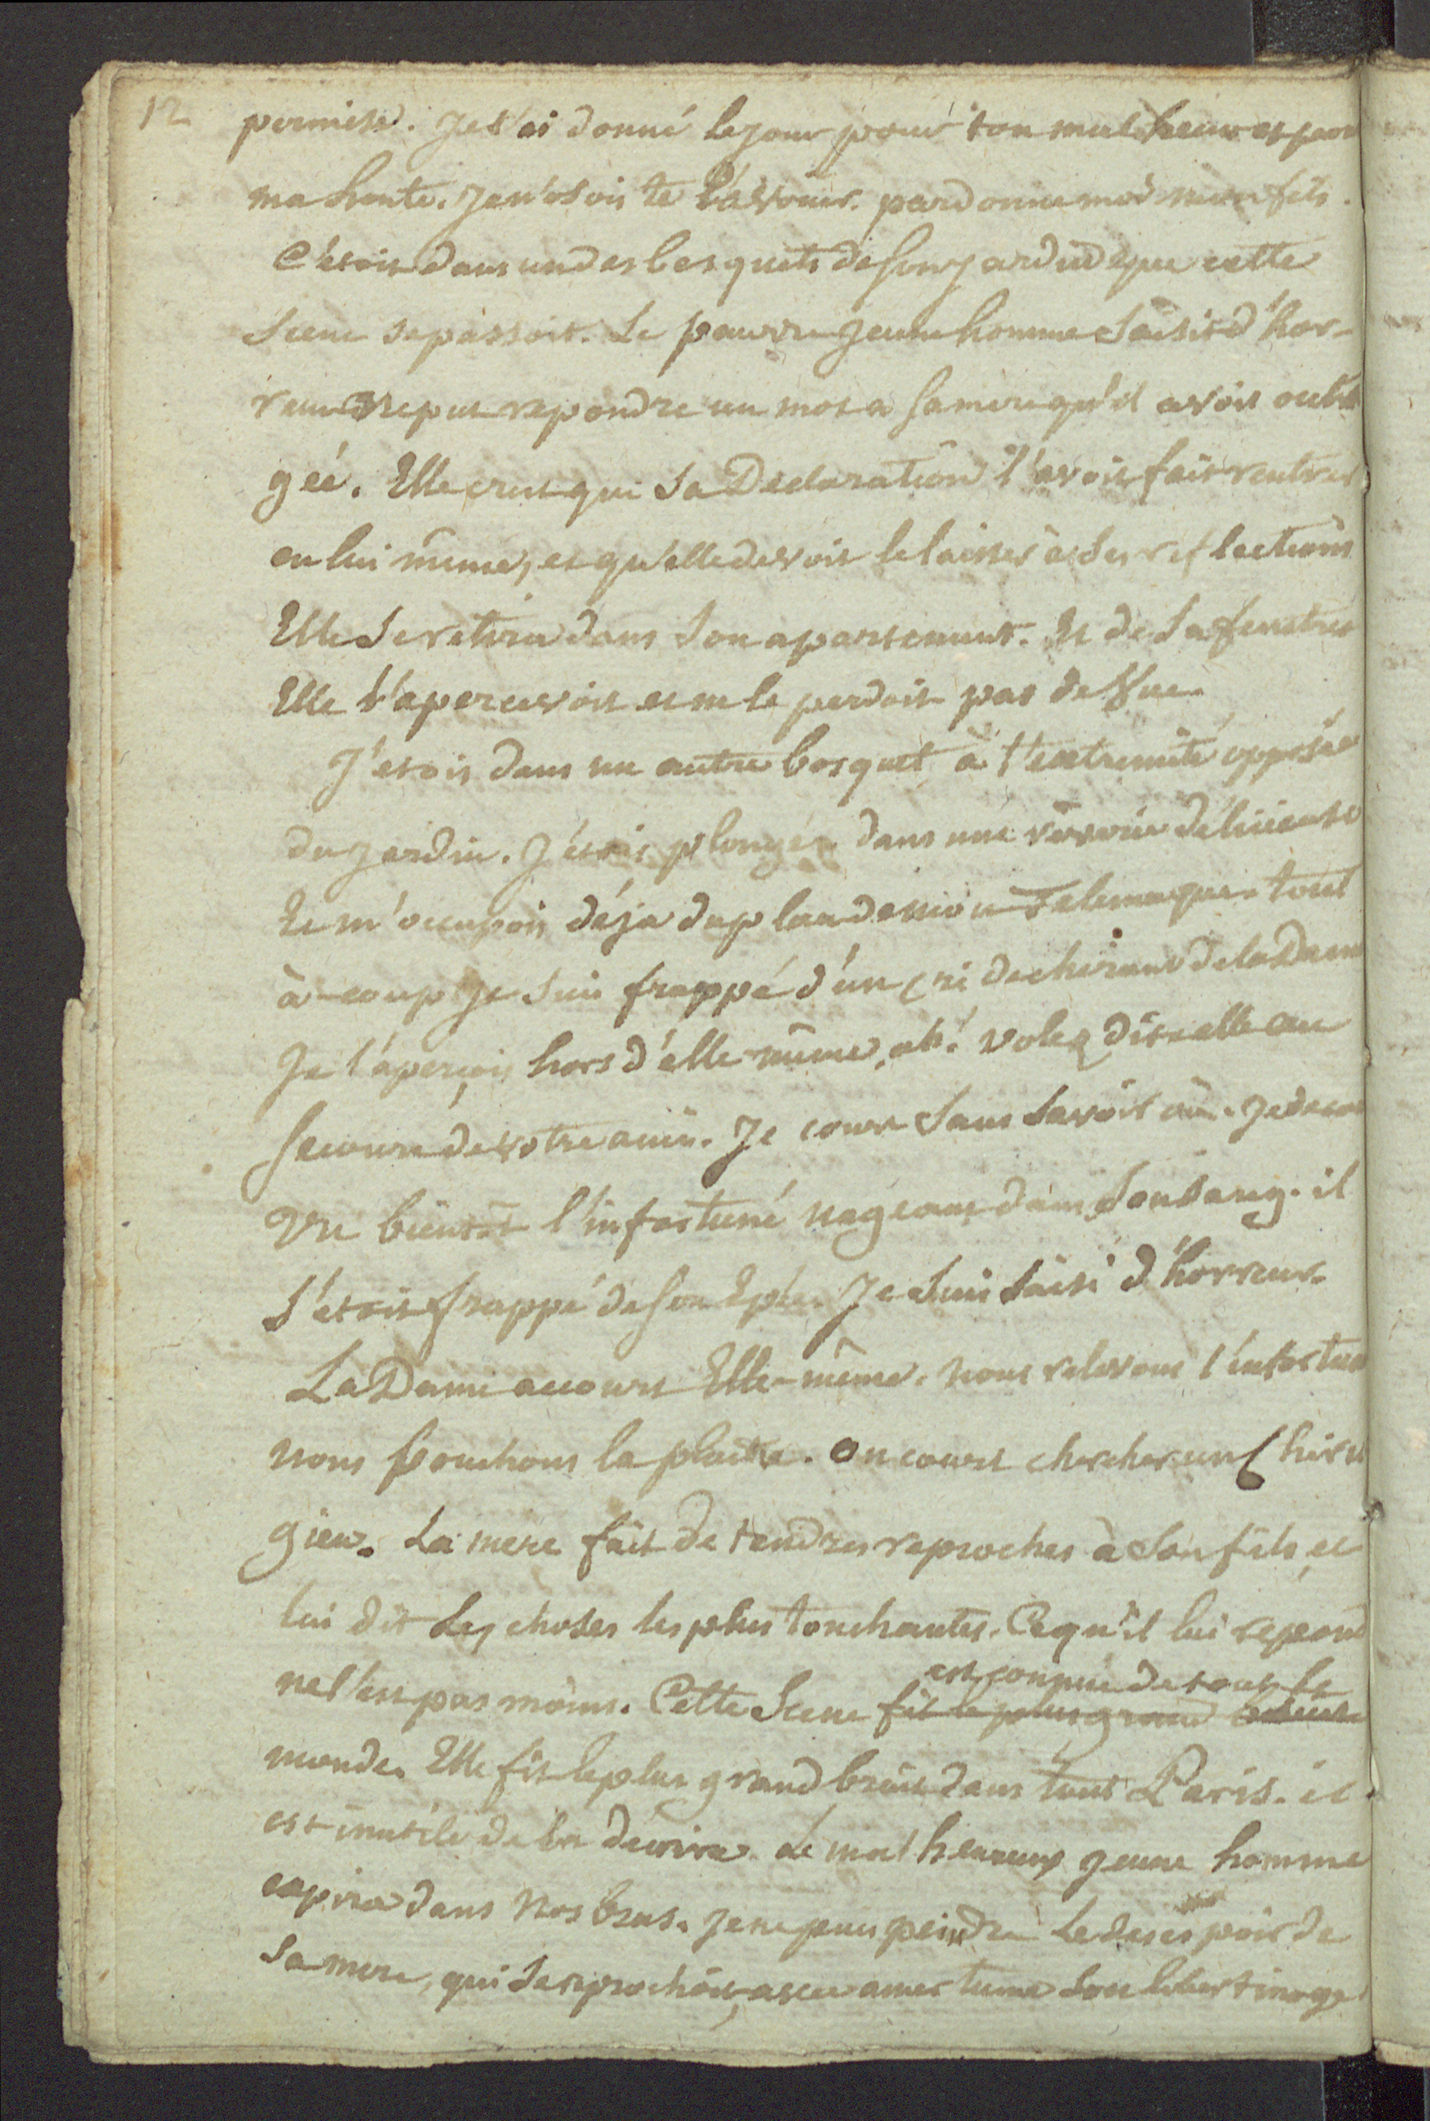 12
permise. Je t'ai donné le jour pour ton malheur et pour
ma honte. Je n'osois te l'avouer. pardonne moi mon fils.
C'étoit dans un des bosquets de son jardin que cette
Scene se passoit. Le pauvre jeune homme saisit d'hor-
reur ne put repondre un mot a sa mere qu'il avoit outra
gée. Elle crut que sa Declaration l'avoit fait rentrer
en lui même, et qu'elle devoit le laisser à ses reflections
Elle se retira dans son apartement. Et de sa fenetre
Elle l'apercevoit et ne le perdoit pas de vue.
J'etois dans un autre bosquet à l'extremité opposée
du jardin. J'étois plongé dans une reverie délicieuse
Je m'occupois déja du plan de mon Telemaque. tout
à-coup je suis frappé d'un cri dechirant de la Dame
Je l'aperçois hors d'elle-même, ah! volez dit-elle au
secours de votre ami. Je cours sans savoir où. Je decou
vre bientôt l'infortuné nageant dans son sang. il
s'etoit frappé de son Epée. Je suis saisi d'horreur.
La Dame accourt Elle-même. nous relevons l'infortuné
nous bouchons la plaie. On court chercher un Chiru
gien. La mere fait de tendres reproches à son fils, et
lui dit les choses les plus touchantes. Ce qu'il lui repond
est connue de tout le
nel'est pas moins. Cette Scene fit le plus grand bruit
monde. Elle fit le plus grand bruit dans tout Paris. il
est inutile de la décrire. Le malheureux jeune homme
expira dans nos bras. Je ne puis peindre le desespoir de
sa mere, qui se reprochoit, avec amertume son libertinage